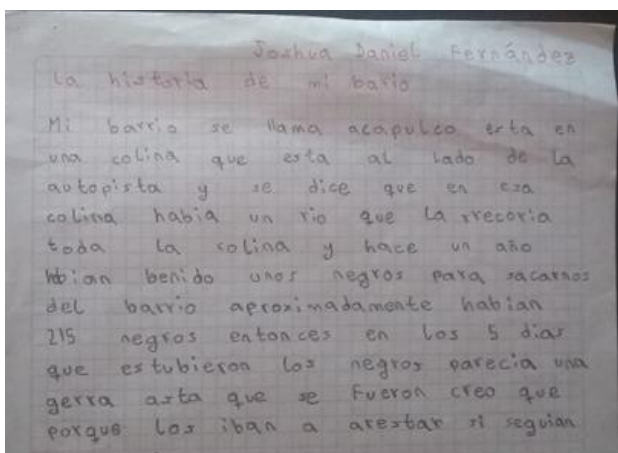 Joshua Daniel Fernández
La historia de mi bario
Mi barrio se llama acapulco esta en
una colina que esta al lado de la
autopista y se dice que en esa
colina habia un rio que la rrecoria
toda la colina y hace un año
hbian benido unos negros para sacarnos
del barrio aproximadamente habian
215 negros entonces en los 5 dias
que estubieron los negros parecia una
gerra asta que se fueron creo que
porque los iban a arestar si seguian